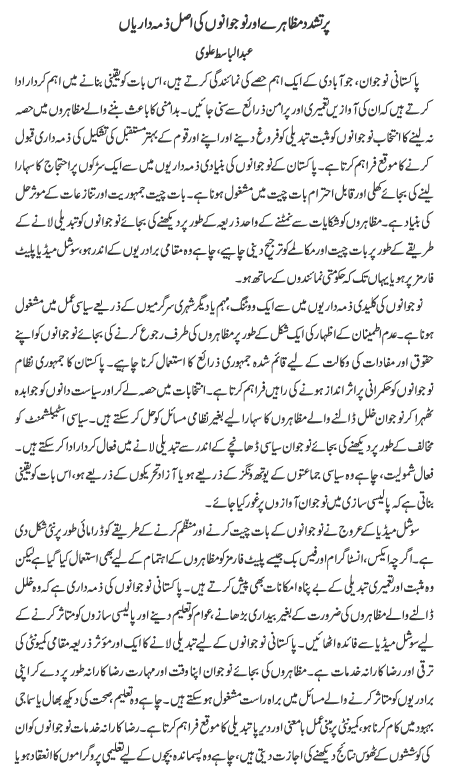 پرتشدد مظاہرے اور نوجوانوں کی اصل ذمہ داریاں
عبدالباسط علوی
پاکستانی نوجوان، جو آبادی کے ایک اہم حصے کی نمائندگی کرتے ہیں، اس بات کو یقینی بنانے میں اہم کردار ادا
کرتے ہیں کہ ان کی آوازیں تعمیری اور پرامن ذرائع سے سنی جائیں۔ بدامنی کا باعث بننے والے مظاہروں میں حصہ
نہ لینے کا انتخاب نوجوانوں کو مثبت تبدیلی کو فروغ دینے اور اپنے اور قوم کے بہتر مستقبل کی تشکیل کی ذمہ داری قبول
کرنے کا موقع فراہم کرتا ہے۔ پاکستان کے نوجوانوں کی بنیادی ذمہ داریوں میں سے ایک سڑکوں پر احتجاج کا سہارا
لینے کی بجائے کھلی اور قابل احترام بات چیت میں مشغول ہونا ہے۔ بات چیت جمہوریت اور تنازعات کے موثر حل
کی بنیاد ہے۔ مظاہروں کو شکایات سے نمٹنے کے واحد ذریعہ کے طور پر دیکھنے کی بجائے نوجوانوں کو تبدیلی لانے کے
طریقے کے طور پر بات چیت اور مکالمے کو ترجیح دینی چاہیے، چاہے وہ مقامی برادریوں کے اندر ہو، سوشل میڈیا پلیٹ
فارمز پر ہو یا یہاں تک کہ حکومتی نمائندوں کے ساتھ ہو۔
نوجوانوں کی کلیدی ذمہ داریوں میں سے ایک ووٹنگ، مہم یا دیگر شہری سرگرمیوں کے ذریعے سیاسی عمل میں مشغول
ہونا ہے۔ عدم اطمینان کے اظہار کی ایک شکل کے طور پر مظاہروں کی طرف رجوع کرنے کی بجائے نوجوانوں کو اپنے
حقوق اور مفادات کی وکالت کے لیے قائم شدہ جمہوری ذرائع کا استعمال کرنا چاہیے۔ پاکستان کا جمہوری نظام
نوجوانوں کو حکمرانی پر اثر انداز ہونے کی راہیں فراہم کرتا ہے۔ انتخابات میں حصہ لے کر اور سیاست دانوں کو جوابدہ
ٹھہرا کر نوجوان خلل ڈالنے والے مظاہروں کا سہارا لیے بغیر نظامی مسائل کو حل کر سکتے ہیں۔ سیاسی اسٹیبلشمنٹ کو
مخالف کے طور پر دیکھنے کی بجائے نوجوان سیاسی ڈھانچے کے اندر سے تبدیلی لانے میں فعال کردار ادا کر سکتے ہیں۔
فعال شمولیت، چاہے وہ سیاسی جماعتوں کے یوتھ ونگز کے ذریعے ہو یا آزاد تحریکوں کے ذریعے ہو، اس بات کو یقینی
بناتی ہے کہ پالیسی سازی میں نوجوان آوازوں پر غور کیا جائے۔
سوشل میڈیا کے عروج نے نوجوانوں کے بات چیت کرنے اور منظم کرنے کے طریقے کو ڈرامائی طور پر نئی شکل دی
ہے۔ اگرچہ ایکس، انسٹاگرام اور فیس بک جیسے پلیٹ فارمز کو مظاہروں کے اہتمام کے لیے بھی استعمال کیا گیا ہے لیکن
وہ مثبت اور تعمیری تبدیلی کے بے پناہ امکانات بھی پیش کرتے ہیں۔ پاکستانی نوجوانوں کی ذمہ داری ہے کہ وہ خلل
ڈالنے والے مظاہروں کی ضرورت کے بغیر بیداری بڑھانے، عوام کو تعلیم دینے اور پالیسی سازوں کو متاثر کرنے کے
لیے سوشل میڈیا سے فائدہ اٹھائیں۔ پاکستانی نوجوانوں کے لیے تبدیلی لانے کا ایک اور مؤثر ذریعہ مقامی کمیونٹی کی
ترقی اور رضاکارانہ خدمات ہے۔ مظاہروں کی بجائے نوجوان اپنا وقت اور مہارت رضاکارانہ طور پر دے کر اپنی
برادریوں کو متاثر کرنے والے مسائل میں براہ راست مشغول ہو سکتے ہیں۔ چاہے وہ تعلیم، صحت کی دیکھ بھال یا سماجی
بہبود میں کام کرنا ہو، کمیونٹی پر مبنی عمل بامعنی اور دیرپا تبدیلی کا موقع فراہم کرتا ہے۔ رضاکارانہ خدمات نوجوانوں کو ان
کی کوششوں کے ٹھوس نتائج دیکھنے کی اجازت دیتی ہیں، چاہے وہ پسماندہ بچوں کے لیے تعلیمی پروگراموں کا انعقاد ہو یا